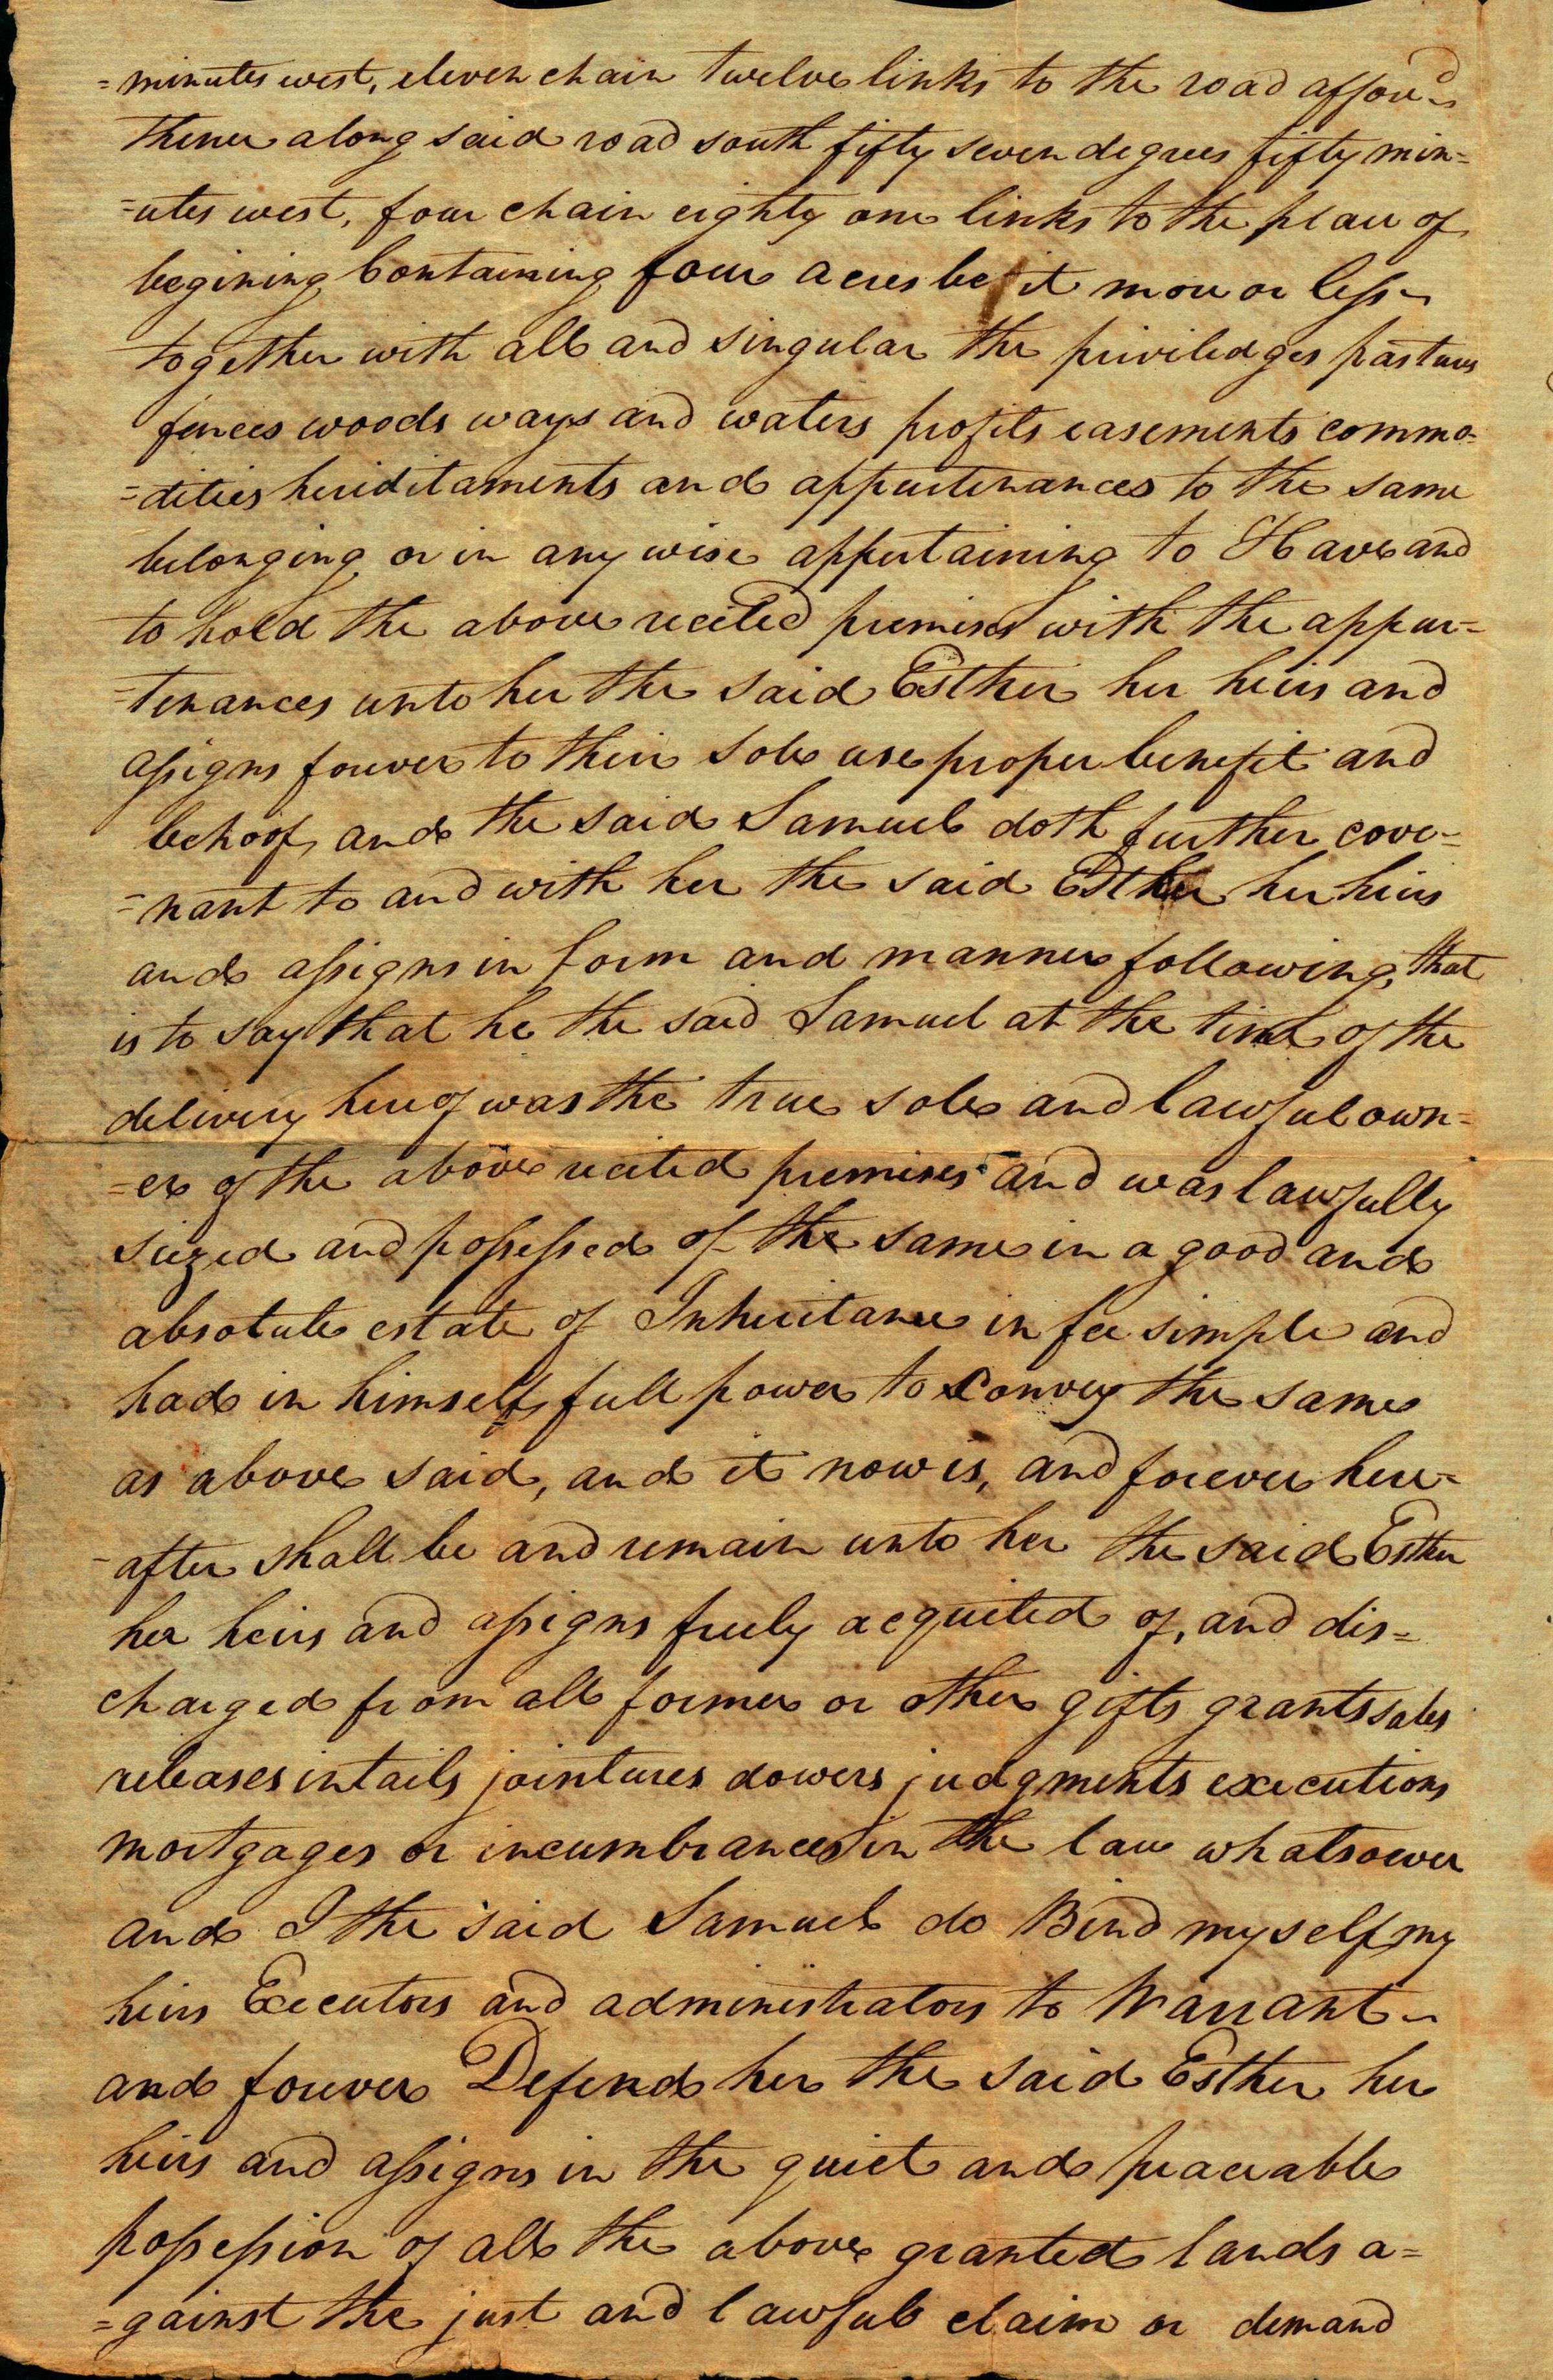 =minutes west, eleven chain twelve links to the road affores^d
thence along said road south fifty seven degrees fifty min=
=utes west, four chain eighty one links to the place of
begining Containing four acres be it more or less
together with all and singular the priviledges pastures
fences woods ways and waters profits easements commo=
=dities heriditaments and appurtenances to the same
belonging or in any wise appertaining to Have and
to hold the above recited premises with the appur=
=tenances unto her the said Esther her heirs and
assigns forever to their sole use proper benefit and
behoof, and the said Samuel doth further cove=
=nant to and with her the said Esther her heirs
and assigns in form and manner following, that
is to say that he the said Samuel at the time of the
delivery hereof was the true sole and lawful own=
=er of the above recited premises and was lawfully
siezed and possessed of the same in a good and
absolute estate of Inheritance in fee simple and
had in himself full power to convey the same
as above said, and it now is, and forever here=
=after shall be and remain unto her the said Esther
her heirs and assigns freely acquited of, and dis=
charged from all former or other gifts grants sales
releases intails jointures dowers judgments executions
mortgages or incumbrances in the law whatsoever
and I the said Samuel do Bind myself my
heirs Executors and administrators to Warrant
and forever Defend her the said Esther her
heirs and assigns in the quiet and peaceable
possession of all the above granted lands a=
=gainst the just and lawful claim or demand